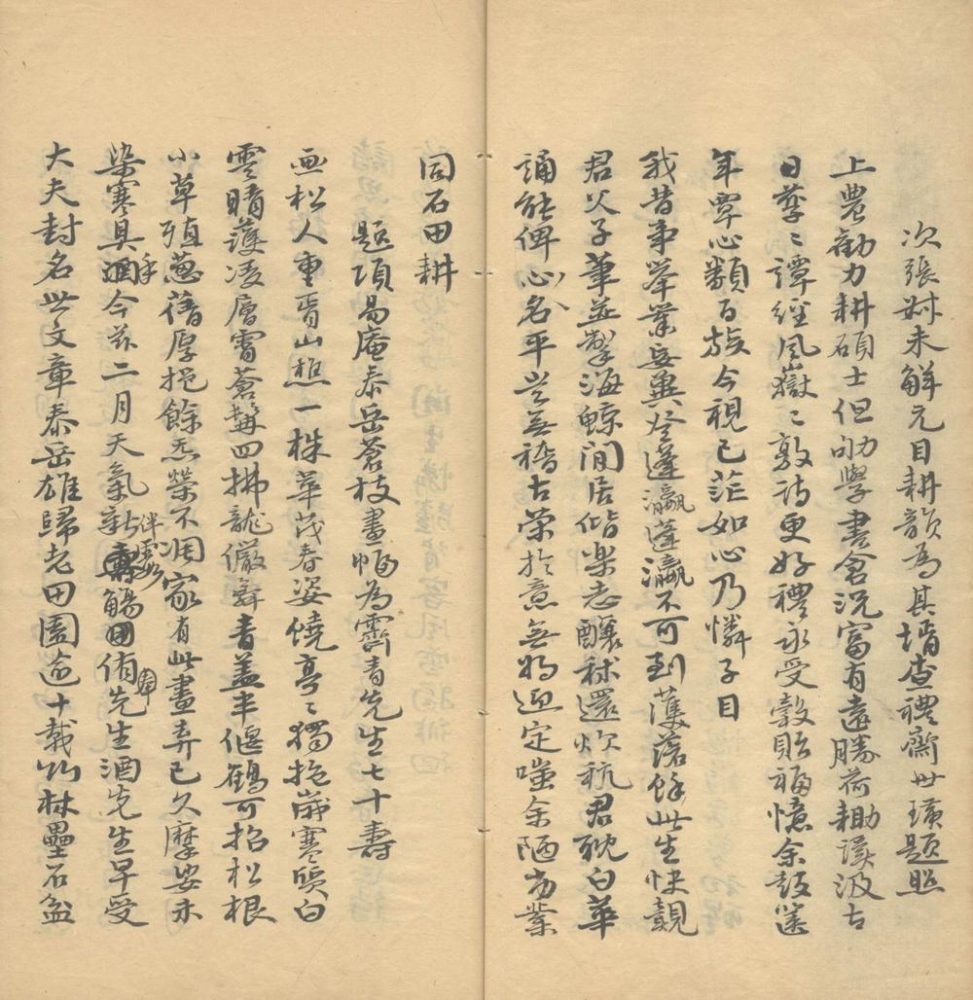 次張叔未解元目耕韻為其壻查禮齋世璜題照
上農勤力耕碩士但劬學書倉況富有遠勝荷耡謨汲古
日孳〻譚經風嶽〻敦詩更好禮永受穀貽福憶余鼓篋
年覃心類百族今視已茫如心乃憐子目
我昔事舉業妄冀登蓬瀛蓬瀛不可到蓬落餘此生快覩
君父子筆並掣海鯨閒居偕樂志釀秫還炊秔君耽白華
誦能俾心名平豈無稽古榮於意無將迎定嗤余陋為業
同石田耕
題項易庵泰岳蒼枝畫幅為霽青先生七十壽
畫松人重胥山樵一株華茂春姿饒亭〻獨抱歲寒質白
雲晴護凌層霄蒼髯四拂龍儼舞青蓋半偃鶴可招松根
小草殖蔥蒨厚挹餘炁榮不凋家有此畫弆已久摩娑未
染寒具手今茲二月天氣新伴觴侑奉先生酒先生早受
大夫封名世文章泰岳雄歸老田園逾十載竹林壘石盆